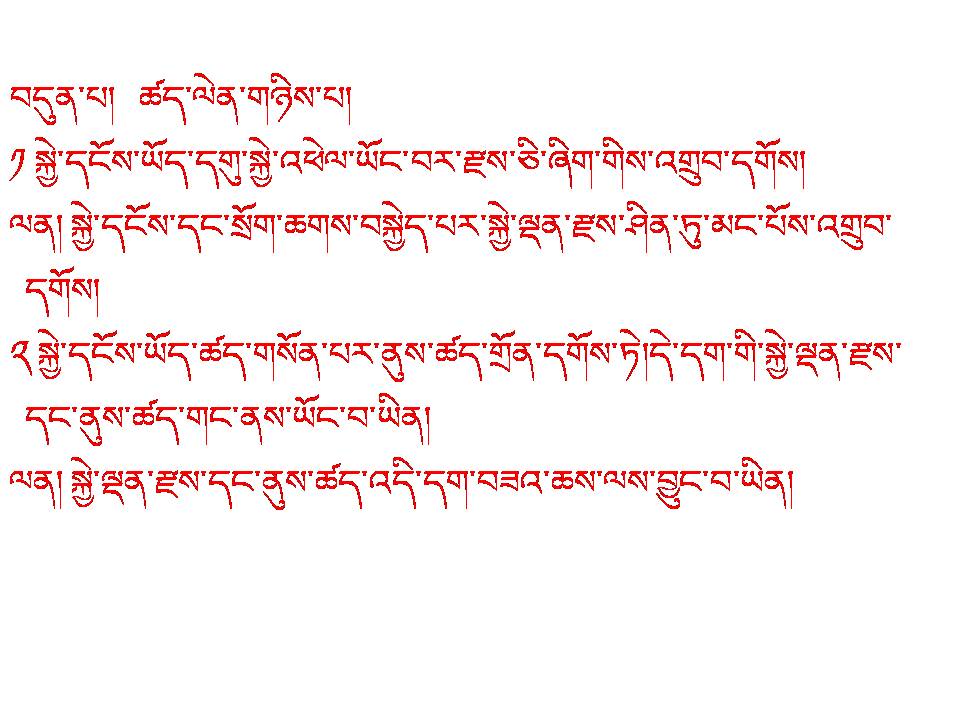 བདུན་པ།  ཚད་ལེན་གཉིས་པ།
༡ སྐྱེ་དངོས་ཡོད་དགུ་སྐྱེ་འཕེལ་ཡོང་བར་རྫས་ཅི་ཞིག་གིས་འགྲུབ་དགོས།
ལན། སྐྱེ་དངོས་དང་སྲོག་ཆགས་བསྐྱེད་པར་སྐྱེ་ལྡན་རྫས་ཤིན་ཏུ་མང་པོས་འགྲུབ་
དགོས།
༢ སྐྱེ་དངོས་ཡོད་ཚད་གསོན་པར་ནུས་ཚད་གྲོན་དགོས་ཏེ།དེ་དག་གི་སྐྱེ་ལྡན་རྫས་
དང་ནུས་ཚད་གང་ནས་ཡོང་བ་ཡིན།
ལན། སྐྱེ་ལྡན་རྫས་དང་ནུས་ཚད་འདི་དག་བཟའ་ཆས་ལས་བྱུང་བ་ཡིན།